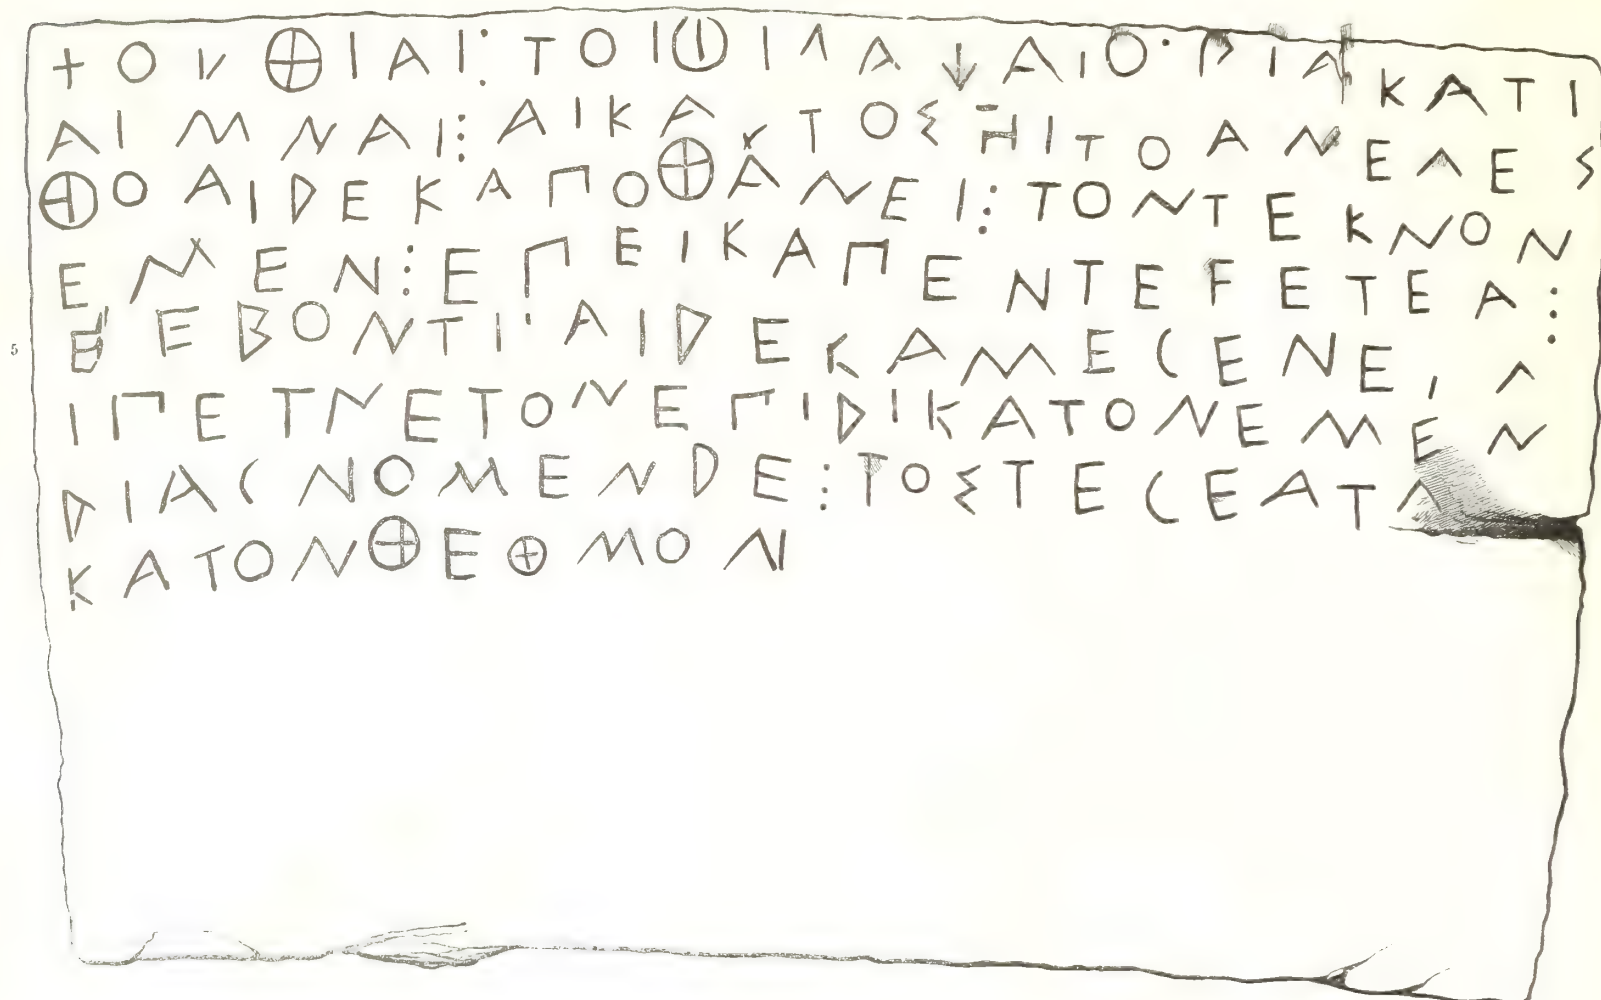 +ΟVΘΙΑΙ⋮ΤΟΙΦΙΛΑΨΑΙΟ·ΡΙΑΚΑΤΙ
ΑΙΜΝΑΙ⋮ΑΙΚΑΥΤΟΣΗΙΤΟΑΝΕΛΕΣ
ΘΟΑΙDΕΚΑΠΟΘΑΝΕΙ⋮ΤΟΝΤΕΚΝΟΝ
ΕΜΕΝ⋮ΕΠΕΙΚΑΠΕΝΤΕϜΕΤΕΑ⋮
5 ΗΕΒΟΝΤΙ·ΑΙDΕΚΑΜΕCΕΝΕΙΛ
ΙΠΕΤΝΕΤΟΝΕΠΙDΙΚΑΤΟΝΕΜΕΝ
DΙΑCΝΟΜΕΝDΕ⋮ΤΟΣΤΕCΕΑΤΑ
ΚΑΤΟΝΘΕΘΜΟΝ